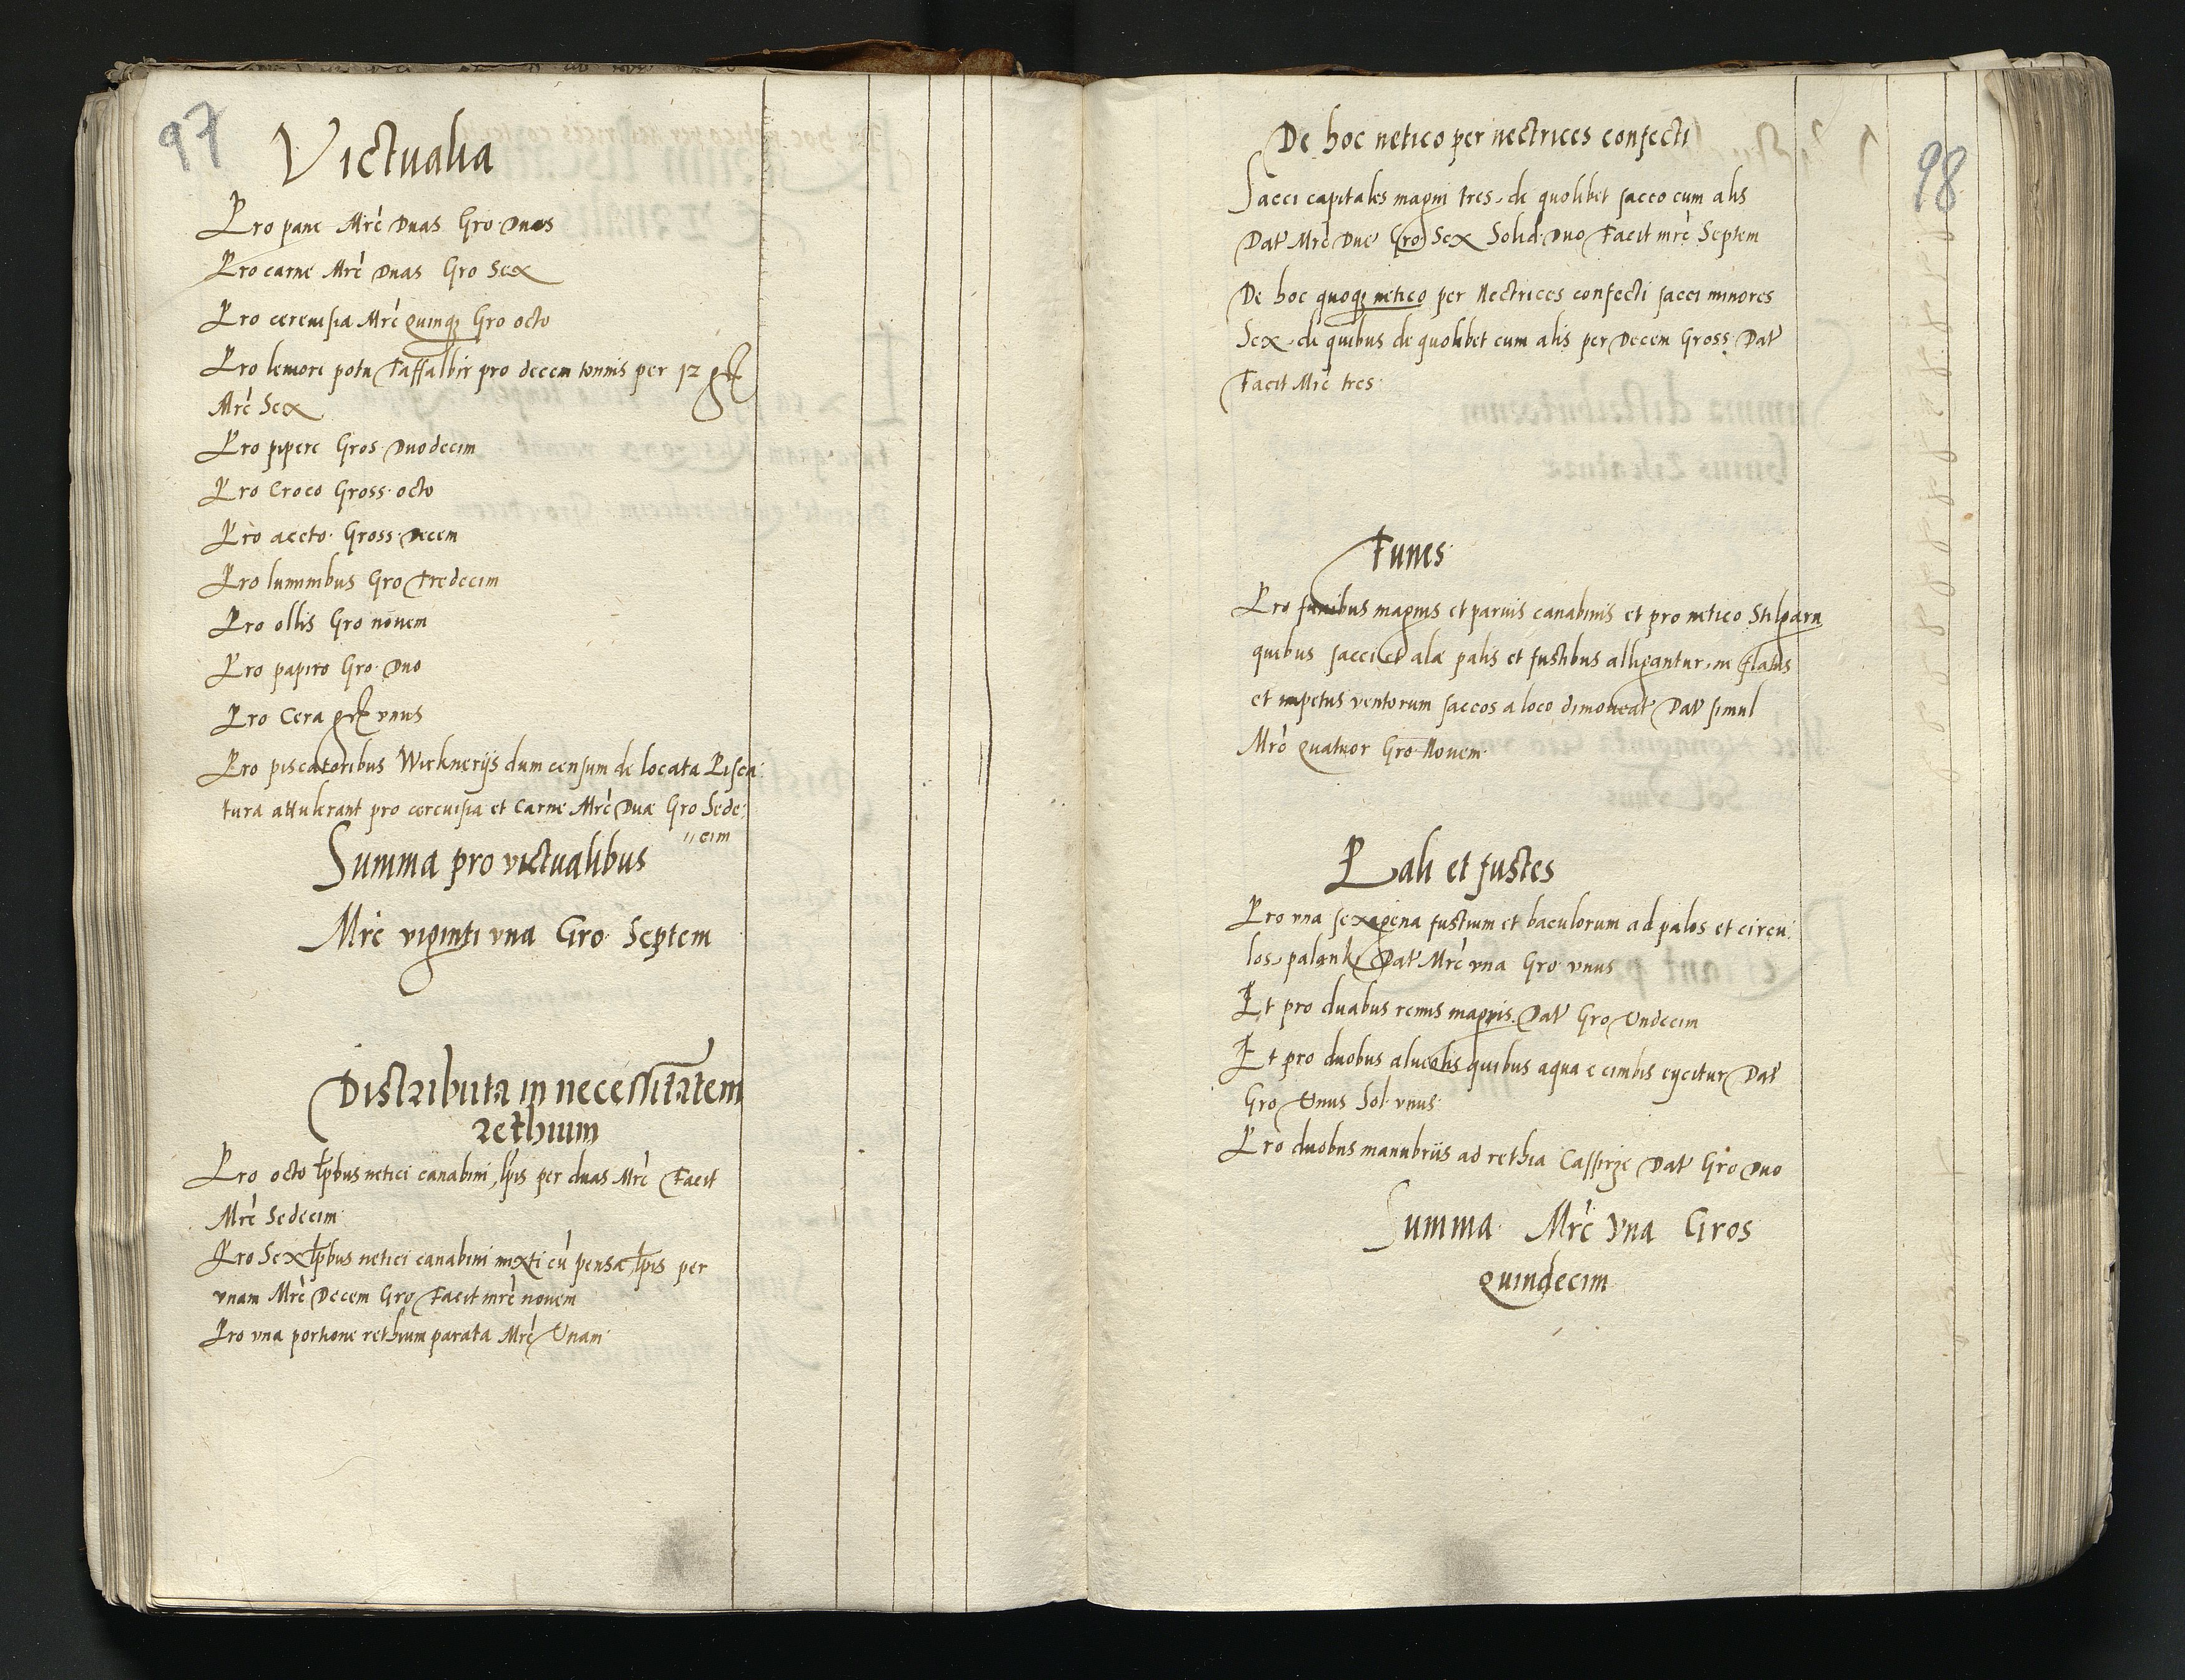 97
Victualia
Pro pane Mrc Duas Gro Duas
Pro carne Mrc Duas Gro Sex
Pro cereuisia Mrc quinq₃ Gro octo
Pro leuiori potu Taffalbir pro decem tonnis per 12 gr
Mrc Sex
Pro pipere Gros Duodecim
Pro Croco Gross octo
Pro aceto Gross Decem
Pro luminibus Gro Tredecim
Pro ollis Gro nouem
Pro papiro Gro Duo
Pro Cera gr vnus
Pro piscatoribus Wicknerijs dum censum de locata Pisca
tura attulerant pro cereuisia et Carne Mrc Duae Gro Sede
"cim
Summa pro victualibus
Mrc viginti vna Gro Septem
Distributa in necessitatem
rethium
Pro octo lpbus netici canabini, lpis per duas Mrc Facit
Mrc Sedecim
Pro Sex lpbus netici canabini mixti cu pensa, lpis per
vnam Mrc Decem Gro Facit mrc nouem
Pro vna portione rethium parata Mrc Vnam
98
De hoc netico per nectrices confecti
Sacci capitales magni tres, de quolibet sacco cum alis
Dat Mrc Due Gro Sex Solid Duo Facit mrc Septem
De hoc quoq₃ netico per Nectrices confecti sacci minores
Sex, de quibus de quolibet cum alis per Decem Gross Dat
Facit Mrc tres
Funes
Pro funibus magnis et paruis canabinis et pro netico Stilgarn
quibus sacci et alae palis et fustibus alligantur, ne flatus
et impetus ventorum saccos a loco dimoueat Dat simul
Mrc quatuor Gro Nouem
Pali et fustes
Pro vna sexagena fustium et baculorum ad palos et circu
los, palanki Dat Mrc vna Gro vnus
Et pro duabus remis magnis Dat Gro Vndecim
Et pro duobus alueolis quibus aqua e cimbis eycitur Dat
Gro Vnus Sol vnus
Pro duobus manubriis ad rethia Cassirze Dat Gro Duo
Summa Mrc Vna Gros
quindecim